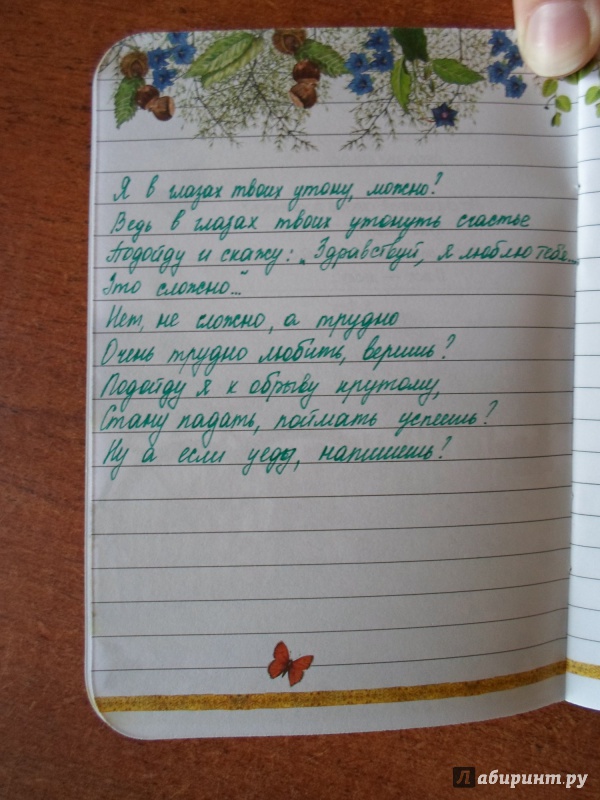 Я в глазах твоих утону, можно?
Ведь в глазах твоих утонуть счастье
Подойду и скажу: „Здравствуй, я люблю тебя...
Это сложно..."
Нет, не сложно, а трудно
Очень трудно любить, веришь?
Подойду я к обрыву крутому,
Стану падать, поймать успеешь?
Ну а если уеду, напишешь?
Лабиринт.ру